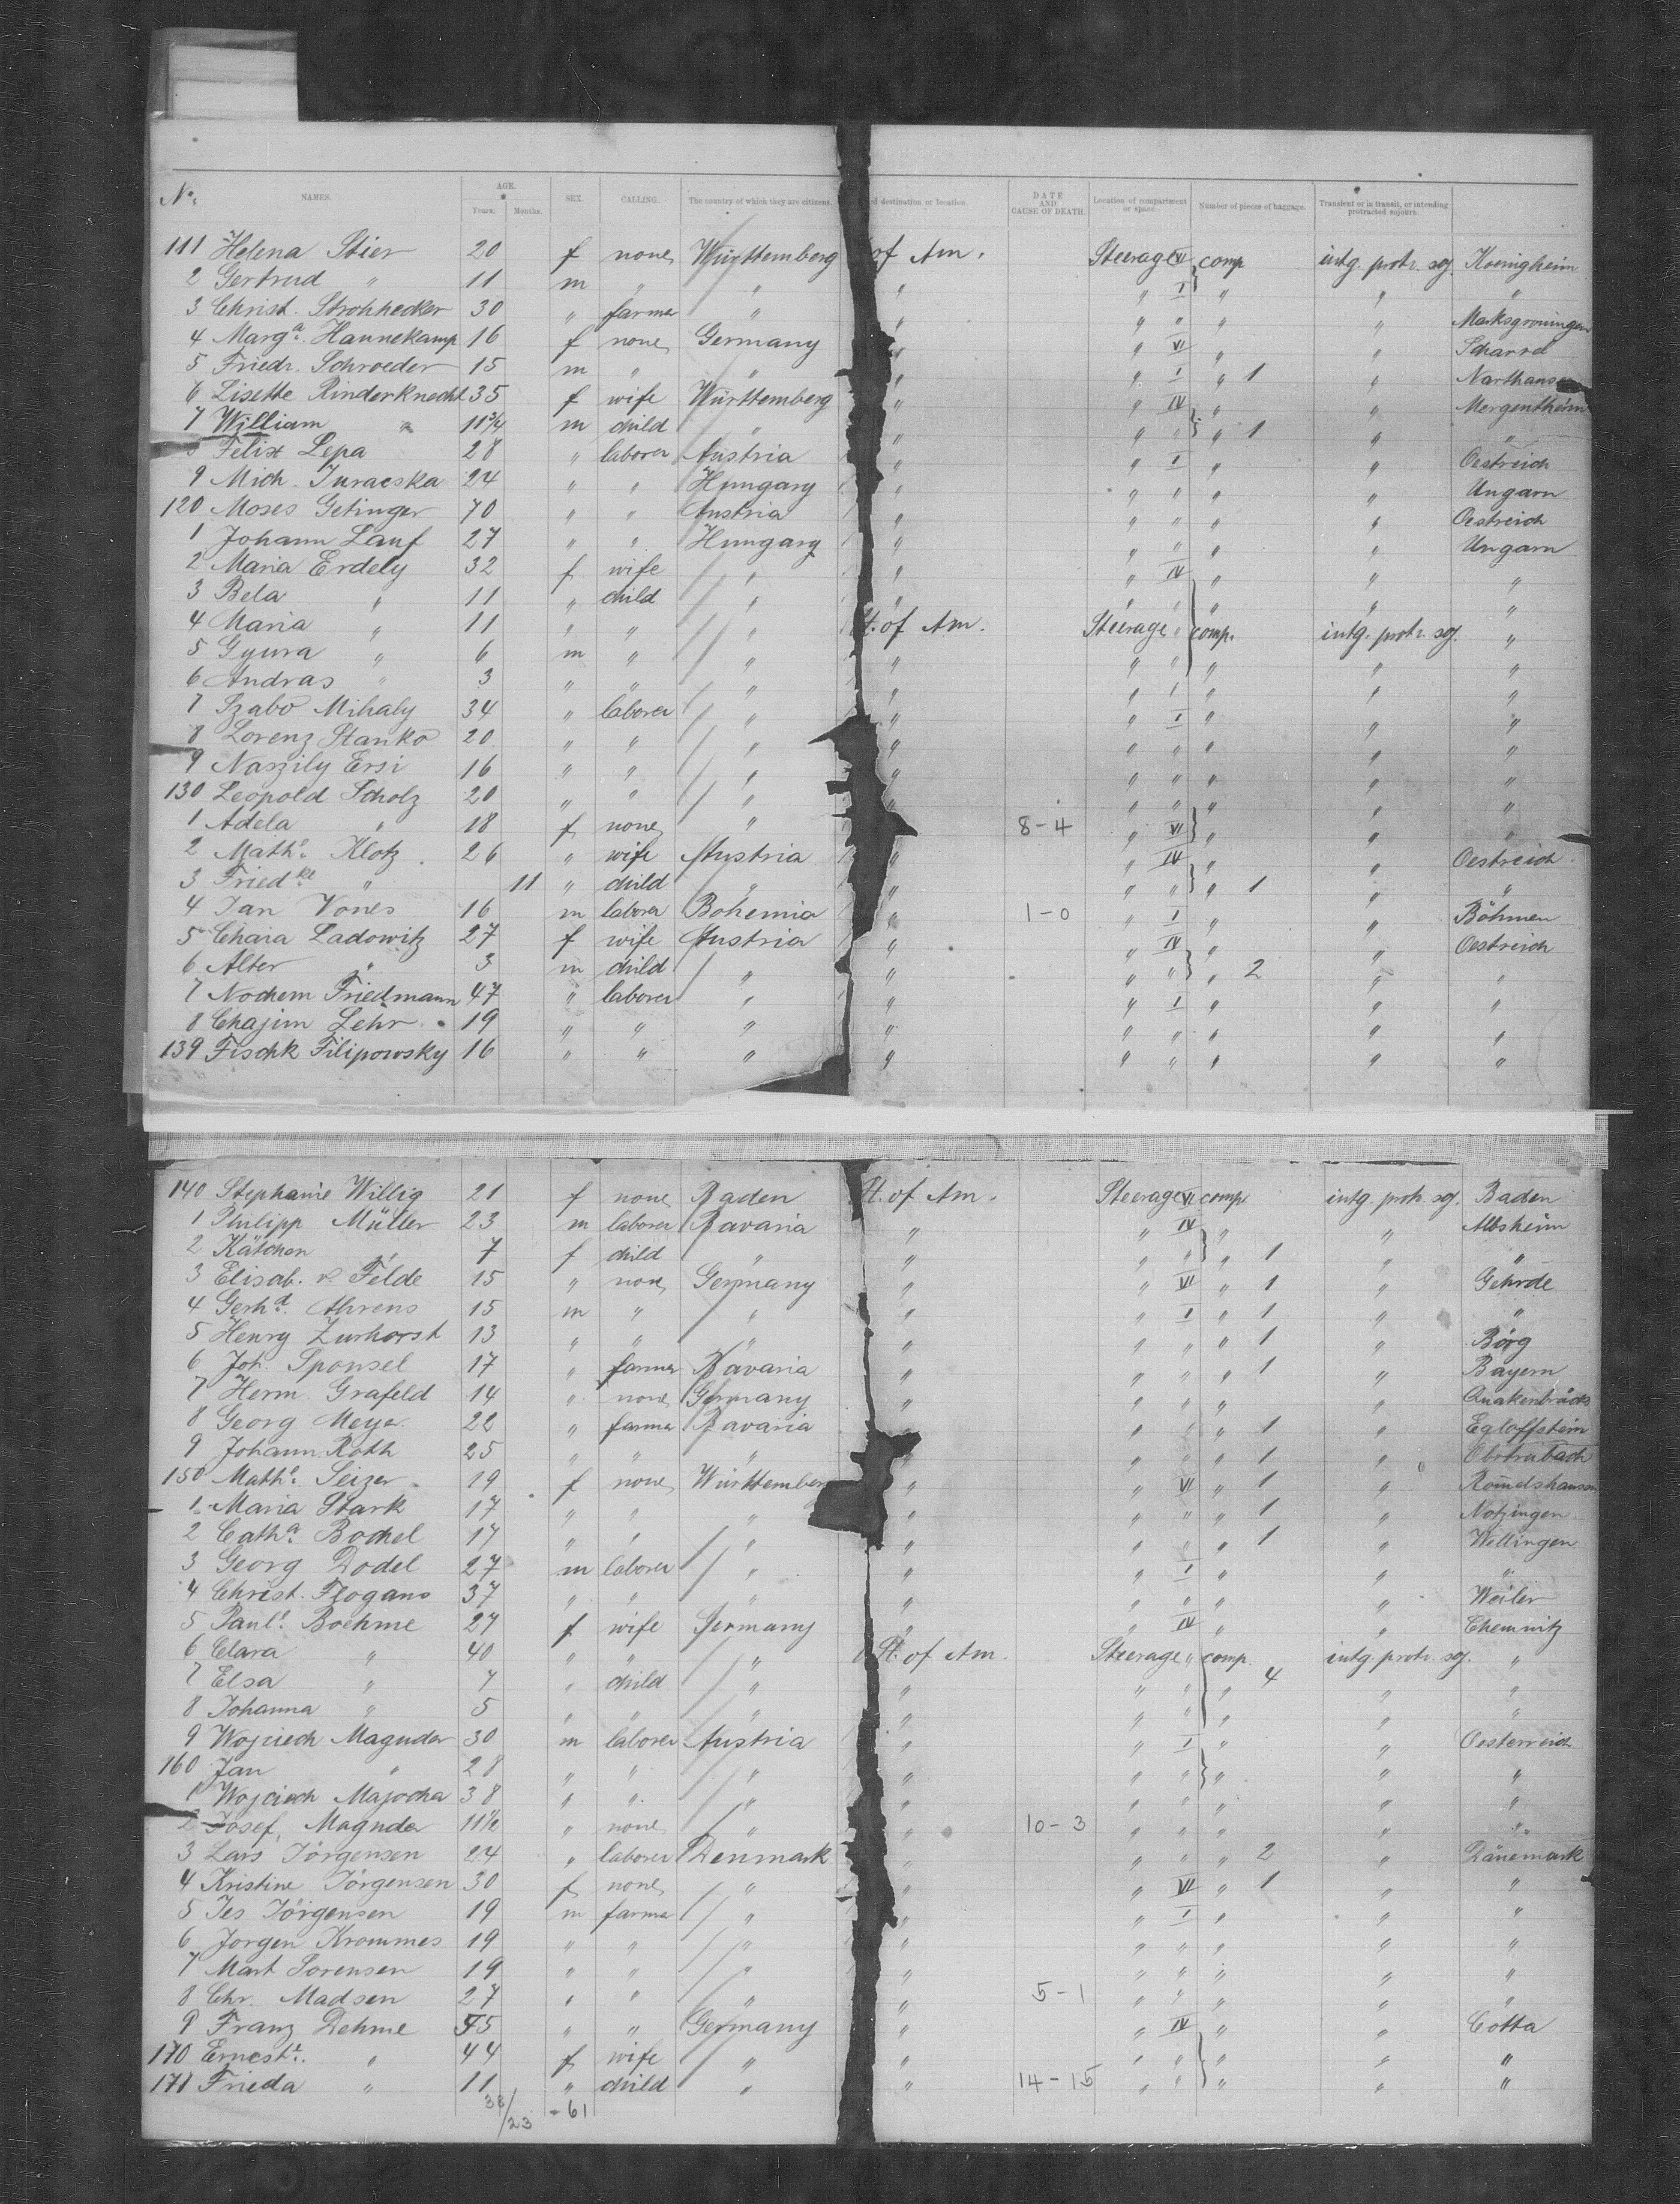 No. NAMES. AGE. Years. Months. SEX. CALLING. The country of which they are citizens. d destination or location. DATE AND CAUSE OF DEATH. Location of compartment or space. Number of pieces of baggage. Transient or in transit, or intending protracted sojourn.
111 Helena Stier 20 f none Württemberg of Am. Steerage VI comp intg. protr. soj. Koenigheim
2 Gertrud " 11 m " " " " I " " "
3 Christ. Strohhecker 30 " farmer " " " " " " Marksgroningen
4 Marga. Hannekamp 16 f none Germany " " VI " " Scharrel
5 Friedr. Schroeder 15 m " " " " I " 1 "
6 Lisette Rinderknecht 35 f wife Württemberg " " IV " " Mergentheim
7 William " 11 3/4 m child " " " " " 1 " "
8 Felix Lepa 28 " laborer Austria " " I " " Oestreich
9 Mich. Juracska 24 " " Hungary " " " " " Ungarn
120 Moses Getinger 70 " " Austria " " " " " Oestreich
1 Johann Lauf 27 " " Hungary " " " " " Ungarn
2 Maria Erdely 32 f wife " " " IV " " "
3 Bela " 11 " child " " " " " " "
4 Maria " 11 " " " St. of Am. Steerage " comp. intg. protr. soj. "
5 Gyura " 6 m " " " " " " " "
6 Andras " 3 " " " " " " " " "
7 Szabo Mihaly 34 " laborer " " " I " " "
8 Lorenz Stanko 20 " " " " " " " " "
9 Naszily Ersi 16 " " " " " " " " "
130 Leopold Scholz 20 " " " " " " " " "
1 Adela " 18 f none " 8-4 " VI " " "
2 Mathe. Klotz 26 " wife Austria " " IV " " Oestreich
3 Friedke " 11 " child " " " " " 1 " "
4 Jan Vones 16 m laborer Bohemia " 1-0 " I " " Böhmen
5 Chaia Ladowitz 27 f wife Austria " " IV " " Oestreich
6 Alter " 3 m child " " " " " 2 " "
7 Nochem Friedmann 47 " laborer " " " I " " "
8 Chajim Lehr 19 " " " " " " " " "
139 Fischk Filipowsky 16 " " " " " " " " "
140 Stephanie Willig 21 f none Baden St. of Am. Steerage VI comp. intg. protr. soj. Baden
1 Philipp Müller 23 m laborer Bavaria " " IV " " Albsheim
2 Kätchen " 7 f child " " " " " 1 " "
3 Elisab. v. Felde 15 " none Germany " " VI " 1 " Gehrde
4 Gerhd. Ahrens 15 m " " " " I " 1 " "
5 Henry Zurhorst 13 " " " " " " " 1 " Börg
6 Joh. Sponsel 17 " farmer Bavaria " " " " 1 " Bayern
7 Herm. Grafeld 14 " none Germany " " " " " Quakenbrück
8 Georg Meyer 22 " farmer Bavaria " " " " 1 " Egloffstein
9 Johann Roth 25 " " " " " " " 1 "
150 Mathe. Seizer 19 f none Württemberg " " VI " 1 " Romelshausen
1 Maria Stark 17 " " " " " " 1 " Notzingen
2 Catha. Bochel 17 " " " " " " " 1 " Wellingen
3 Georg Dodel 27 m laborer " " " I " " "
4 Christ. Flogans 37 " " " " " " " " Weiler
5 Paule. Boehme 27 f wife Germany " " IV " " Chemnitz
6 Clara " 40 " " " St. of Am. Steerage " comp. intg. protr. soj. "
7 Elsa " 7 " child " " " " " 4 " "
8 Johanna " 5 " " " " " " " " "
9 Wojciech Maguder 30 m laborer Austria " " I " " Oesterreich
160 Jan " 28 " " " " " " " " "
1 Wojciech Majocha 38 " " " " " " " " "
2 Josef Maguder 11 1/2 " none " " 10-3 " " " " "
3 Lars Jörgensen 24 " laborer Denmark " " " " 2 " Dänemark
4 Kristine Jörgensen 30 f none " " " VI " 1 " "
5 Jes Jörgensen 19 m farmer " " " I " " "
6 Jorgen Krommes 19 " " " " " " " " "
7 Mart Sorensen 19 " " " " " " " " "
8 Chr. Madsen 27 " " " " 5-1 " " " " "
9 Franz Dehme 55 " " Germany " " IV " " Cotta
170 Erneste. " 44 f wife " " " " " " "
171 Frieda " 11 " child " " 14-15 " " " " "
38/23 -61